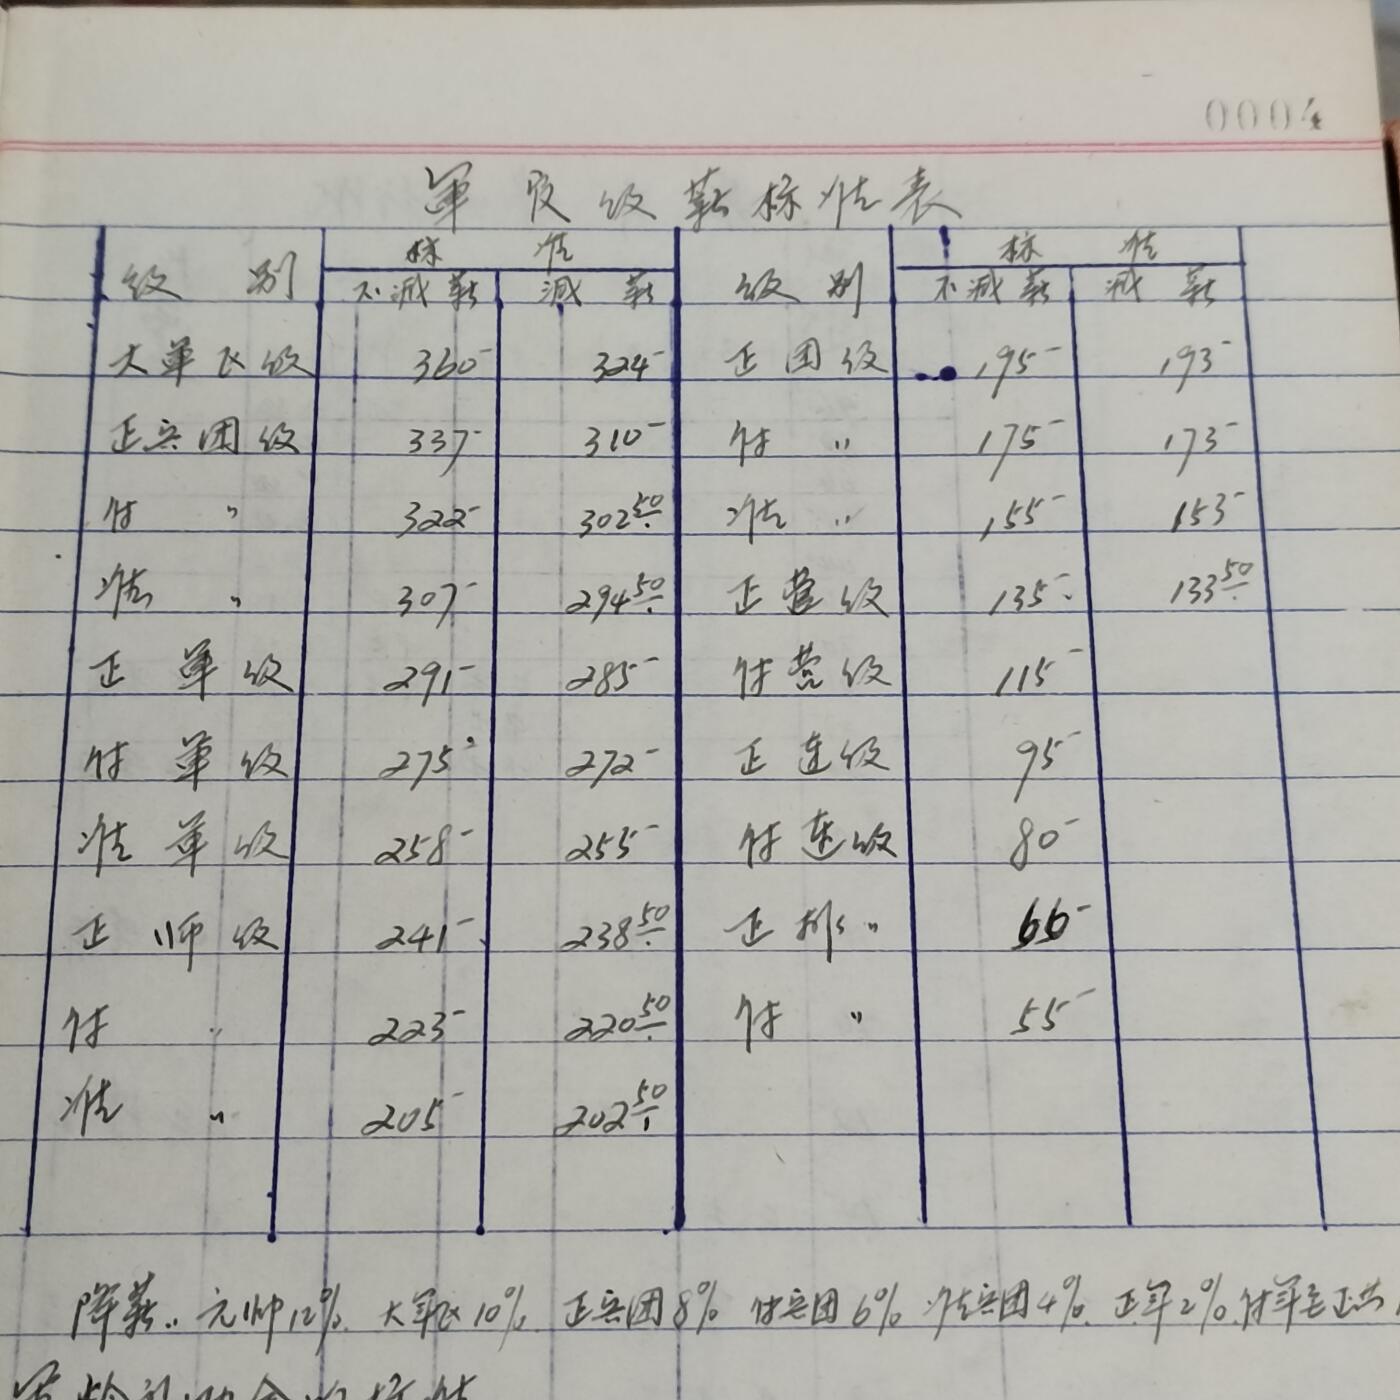 0004
军官级薪标准表
级别 标准 级别 标准
不减薪 减薪 不减薪 减薪
大军区级 360- 324- 正团级 195- 193-
正兵团级 337- 310- 付 〃 175- 173-
付 〃 322- 302.50 准 〃 155- 153-
准 〃 307- 294.50 正营级 135- 133.50
正军级 291- 285- 付营级 115-
付军级 275- 272- 正连级 95-
准军级 258- 255- 付连级 80-
正师级 241- 238.50 正排〃 66-
付 〃 223- 220.50 付 〃 55-
准 〃 205- 202.50
降薪：元帅12%. 大军区10% 正兵团8% 付兵团6% 准兵团4%. 正军2%. 付军至正